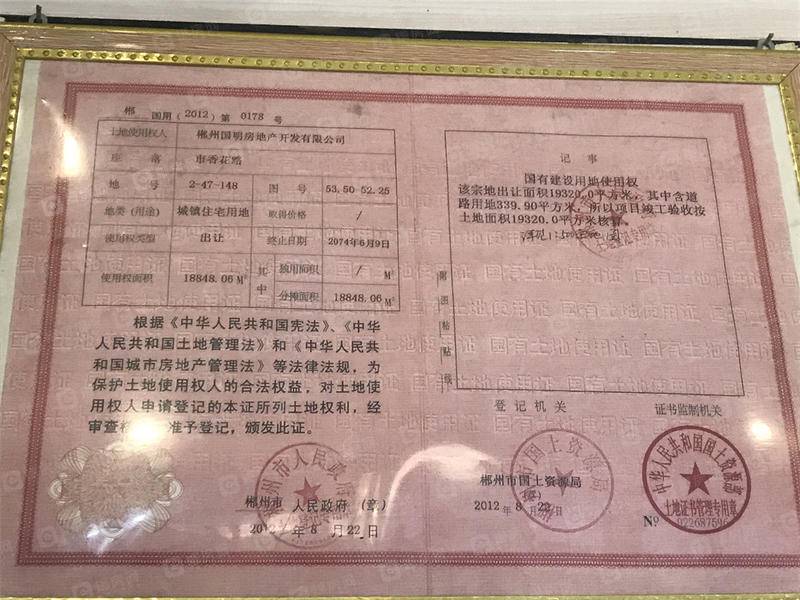 郴 国用（2012）第 0178 号
土地使用权人 郴州国明房地产开发有限公司
座 落 市香花路
地 号 2-47-148 图 号 53.50-52.25
地类（用途） 城镇住宅用地 取得价格 /
使用权类型 出让 终止日期 2074年6月9日
使用权面积 18848.06 M² 其中 独用面积 / M²
分摊面积 18848.06 M²
根据《中华人民共和国宪法》、《中华
人民共和国土地管理法》和《中华人民共
和国城市房地产管理法》等法律法规，为
保护土地使用权人的合法权益，对土地使
用权人申请登记的本证所列土地权利，经
审查 准予登记，颁发此证。
郴州市 人民政府 （章）
2012 年 8 月 22 日
郴州市人民政府
记 事
国有建设用地使用权
该宗地出让面积19320.0平方米，其中含道
路用地339.90平方米，所以项目竣工验收按
土地面积19320.0平方米核算。
附图粘贴线
登记机关
证书监制机关
郴州市国土资源局
2012 年 8 月
市国土资源局
中华人民共和国国土资源部
土地证书管理专用章
№ 022687596
国有土地使用证